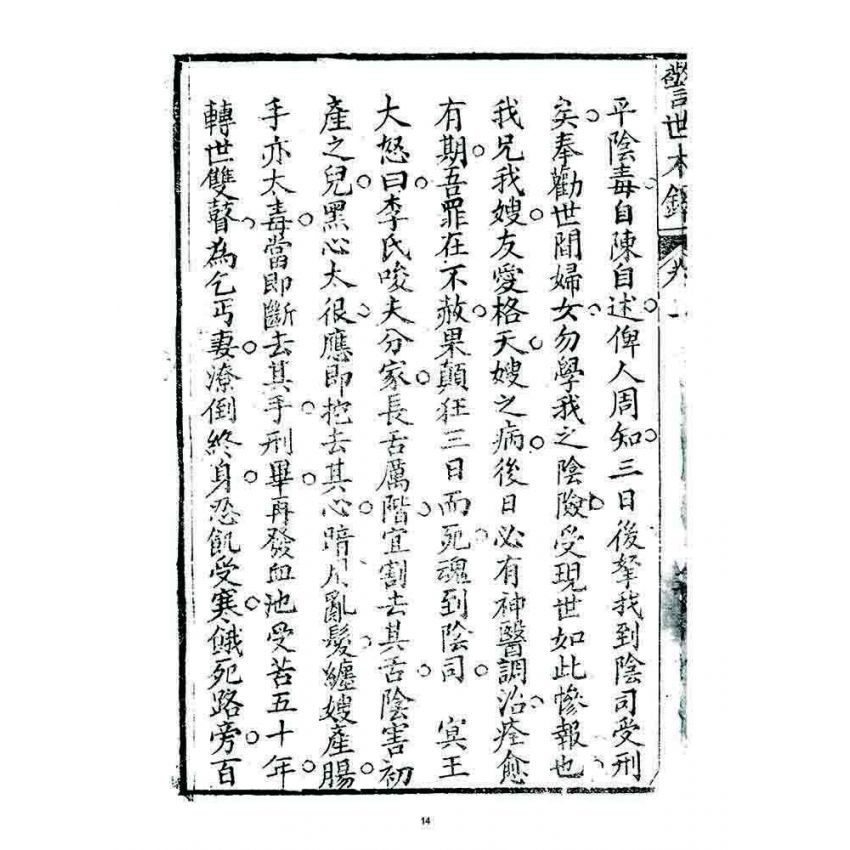 警世木鐸 卷一
平陰毒自陳自述俾人周知三日後拏我到陰司受刑
矣奉勸世間婦女勿學我之陰險受現世如此慘報也
我兄我嫂友愛格天嫂之病後日必有神醫調治痊愈
有期吾罪在不赦果顛狂三日而死魂到陰司 冥王
大怒曰李氏唆夫分家長舌厲階宜割去其舌陰害初
產之兒黑心太很應即挖去其心暗用亂髮纏嫂產腸
手亦太毒當即斷去其手刑畢再發血池受苦五十年
轉世雙瞽為乞丐妻潦倒終身忍飢受寒餓死路旁百
14